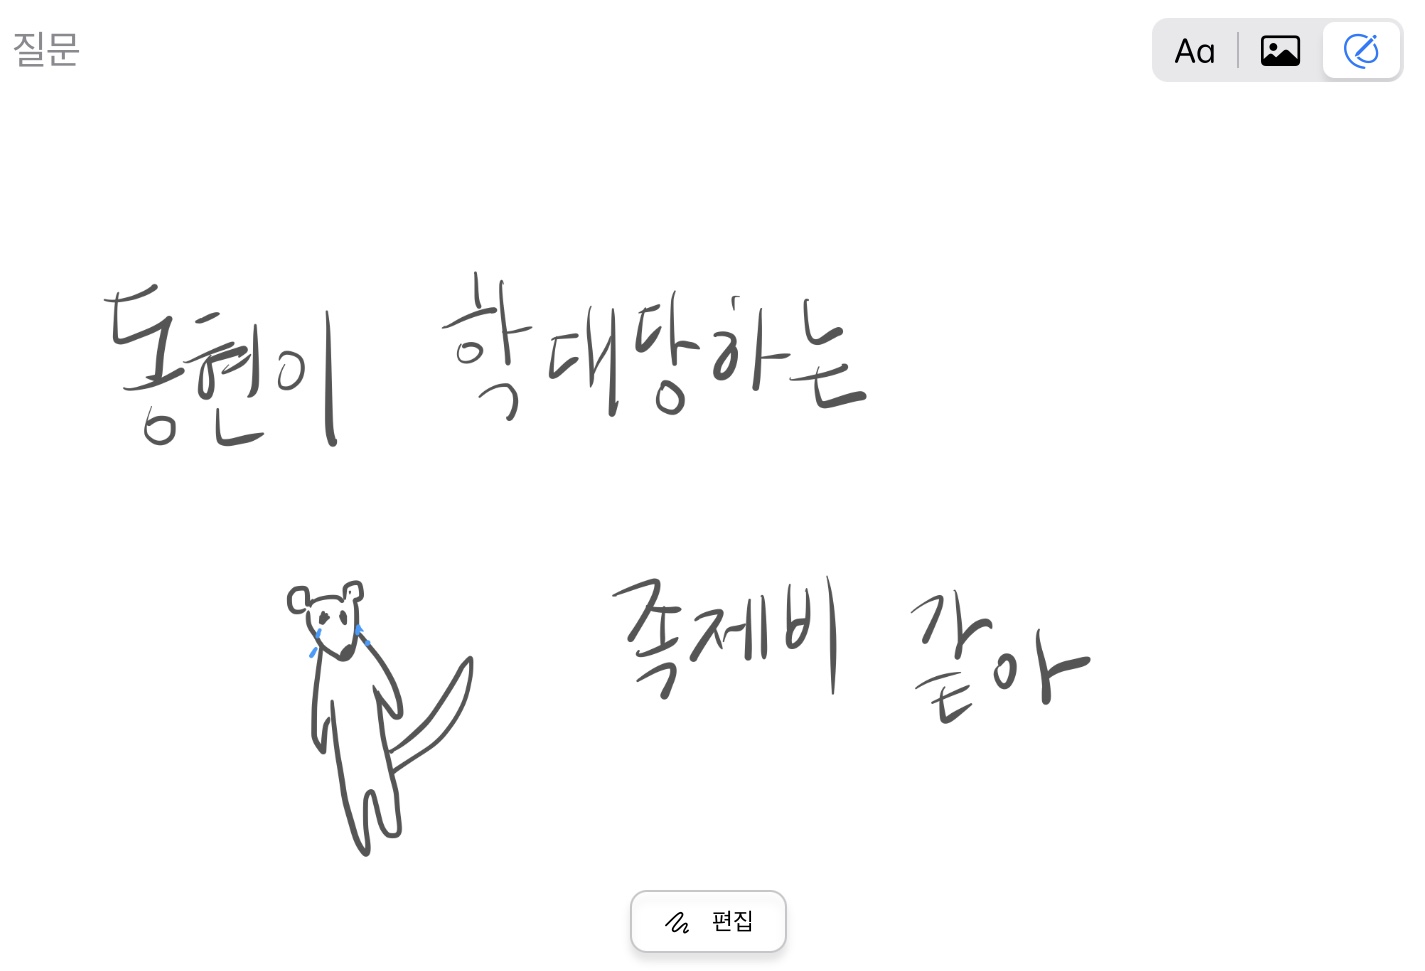 질문
Aa
동현이 학대당하는
족제비 같아
편집